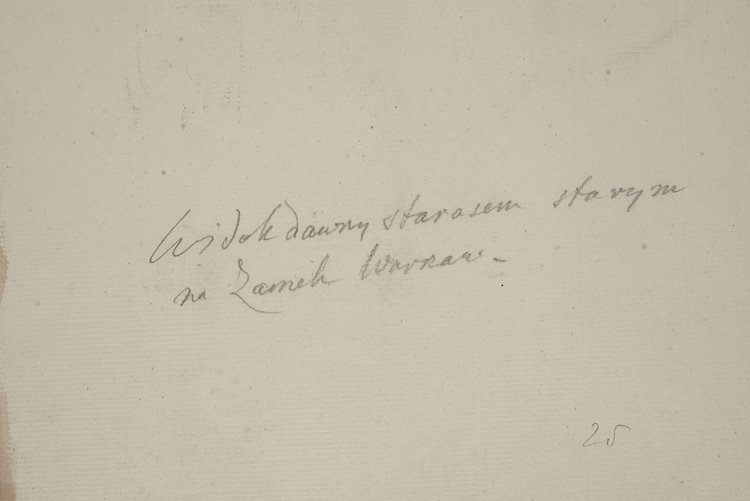 Widok dawny starasem starym
na Zamek Warszaw -
25